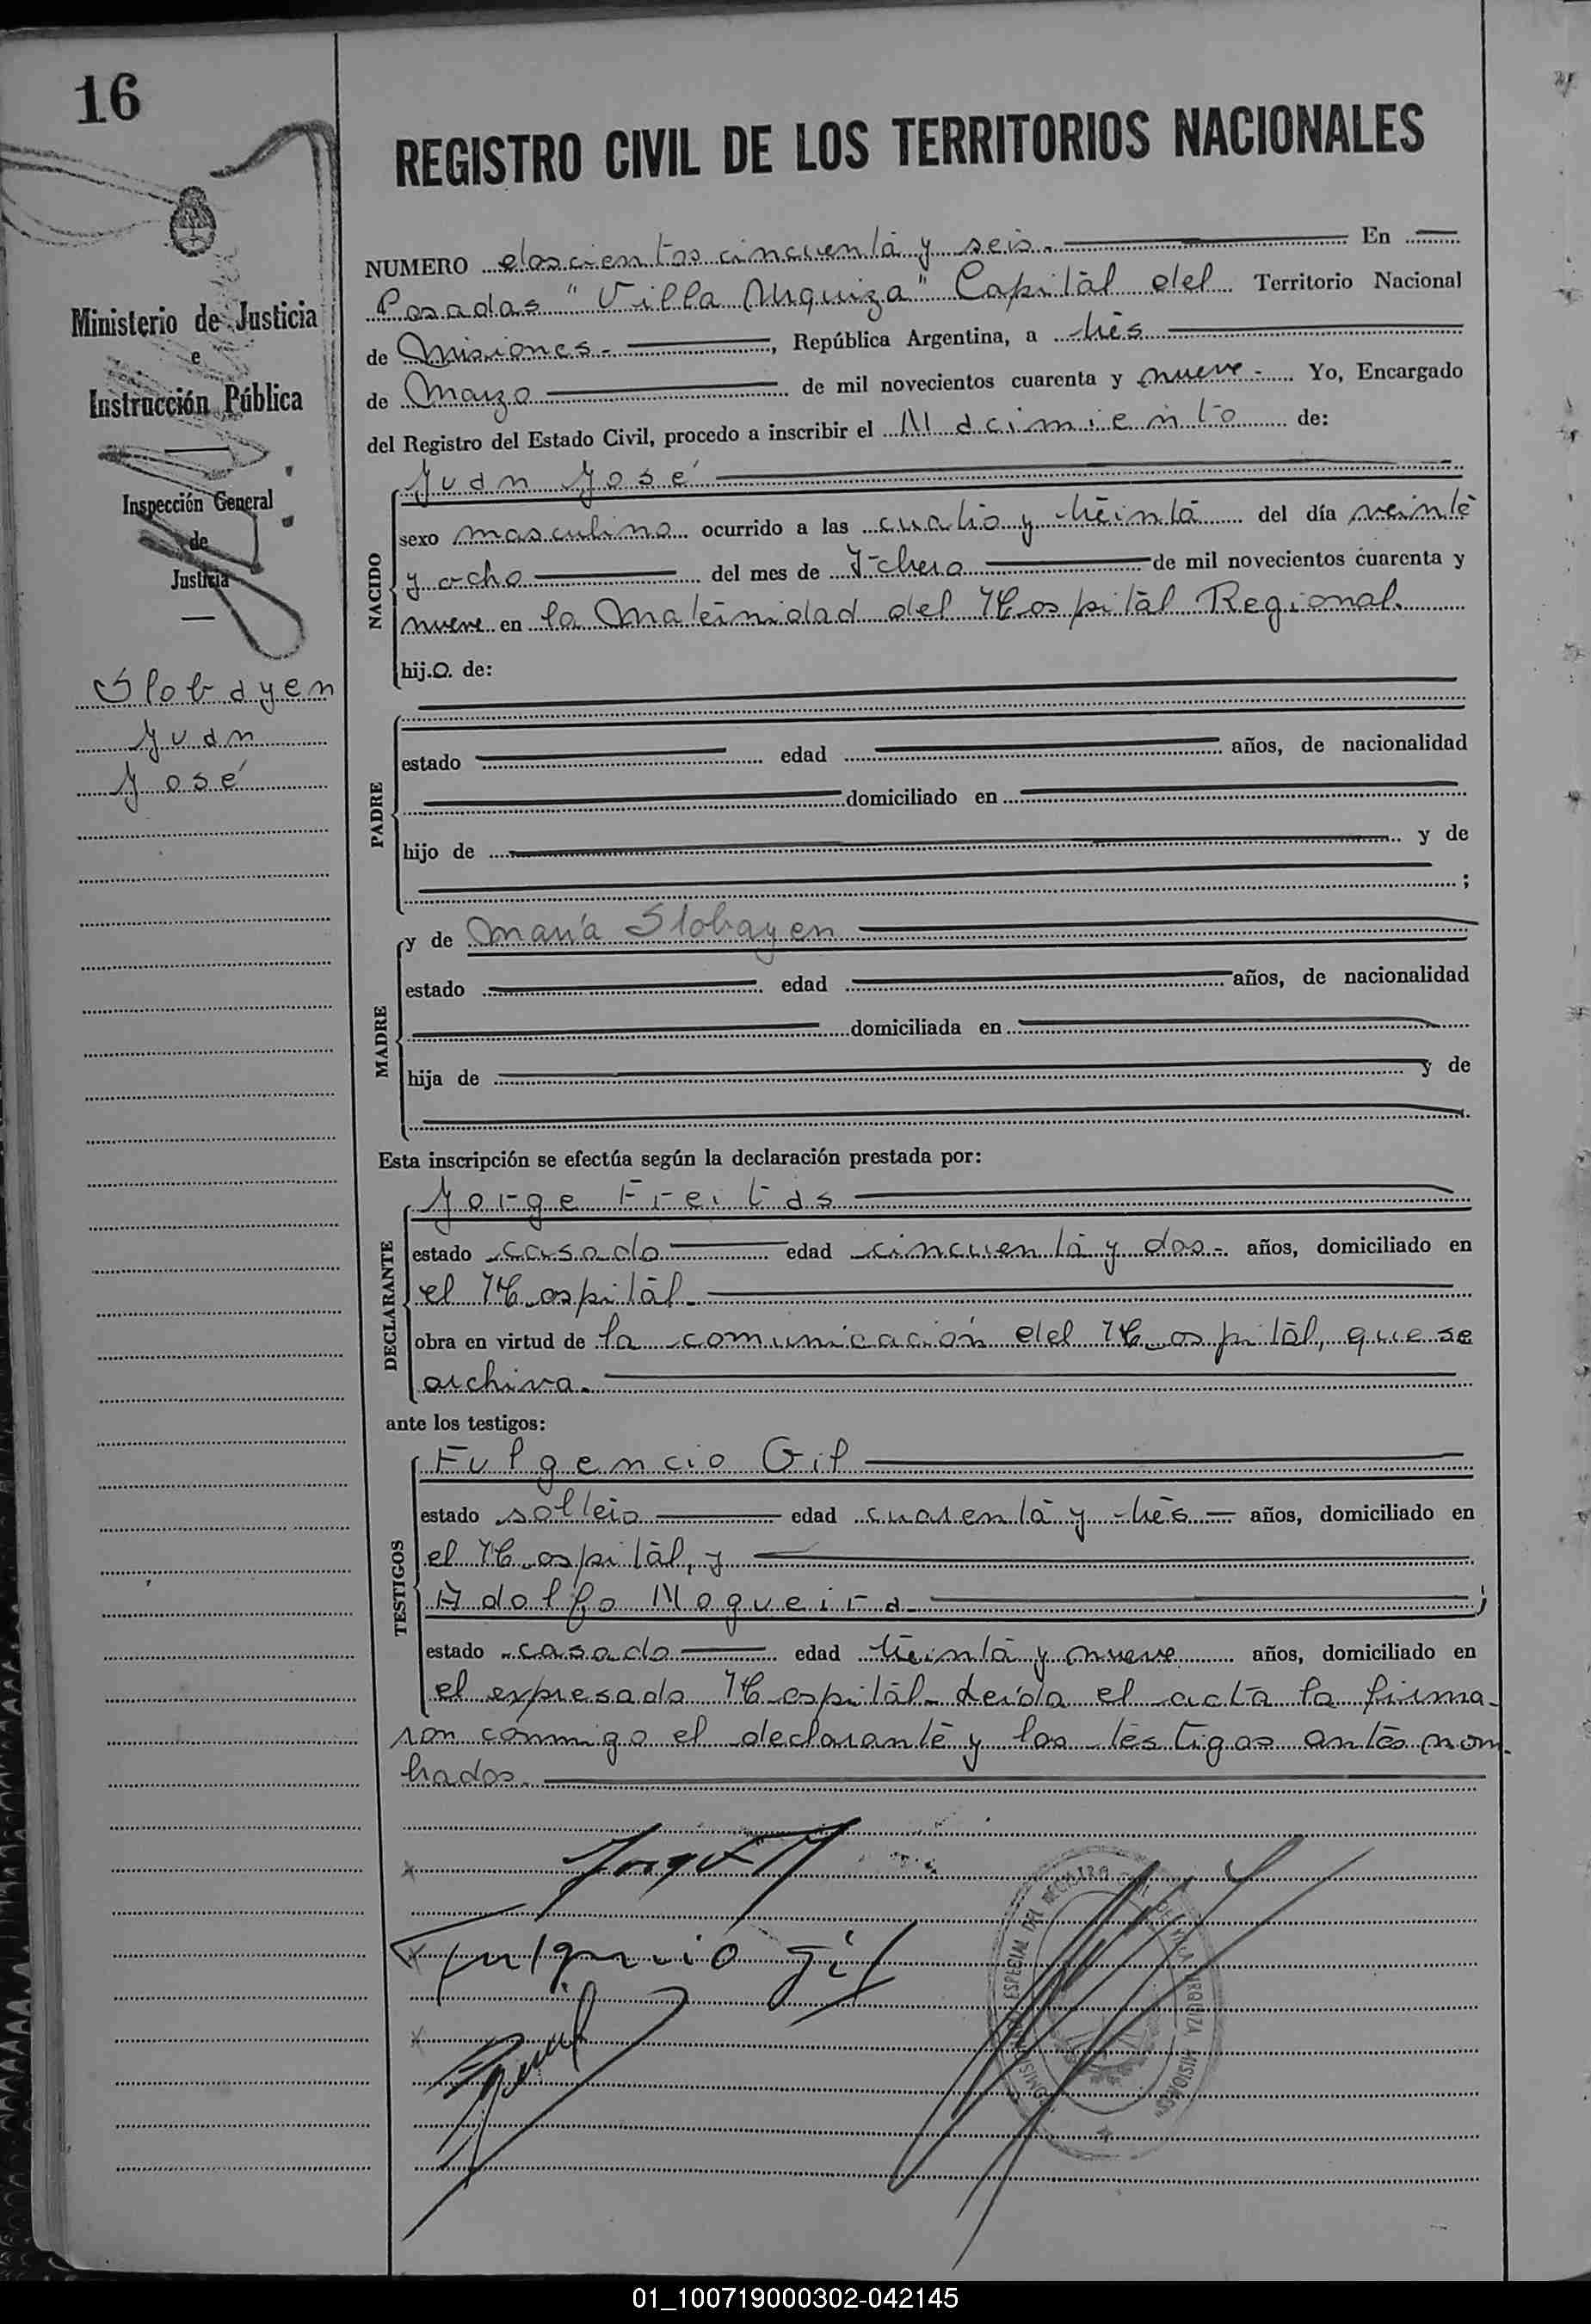 16
REGISTRO CIVIL DE LOS TERRITORIOS NACIONALES
Ministerio de Justicia
e
Instrucción Pública
Inspección General
de
Justicia
Slobayen
Juan
José
NUMERO doscientos cincuenta y seis. En
Posadas "Villa Urquiza" Capital del Territorio Nacional
de Misiones, República Argentina, a tres
de Marzo de mil novecientos cuarenta y nueve. Yo, Encargado
del Registro del Estado Civil, procedo a inscribir el Nacimiento de:
NACIDO
Juan José
sexo masculino ocurrido a las cuatro y treinta del día veinte
y ocho del mes de Febrero de mil novecientos cuarenta y
nueve en la Maternidad del Hospital Regional.
hijo de:
PADRE
estado edad años, de nacionalidad
domiciliado en
hijo de y de
;
MADRE
y de María Slobayen
estado edad años, de nacionalidad
domiciliada en
hija de y de
Esta inscripción se efectúa según la declaración prestada por:
DECLARANTE
Jorge Freitas
estado casado edad cincuenta y dos. años, domiciliado en
el Hospital.
obra en virtud de la comunicación del Hospital, que se
archiva.
ante los testigos:
TESTIGOS
Fulgencio Gil
estado soltero edad cuarenta y tres años, domiciliado en
el Hospital, y
Adolfo Nogueira ;
estado casado edad treinta y nueve años, domiciliado en
el expresado Hospital. Leída el acta la firma-
ron conmigo el declarante y los testigos antes nom-
brados.
Fulgencio Gil
COMISARIATO ESPECIAL DEL REGISTRO CIVIL DE VILLA URQUIZA MISIONES
01_100719000302-042145